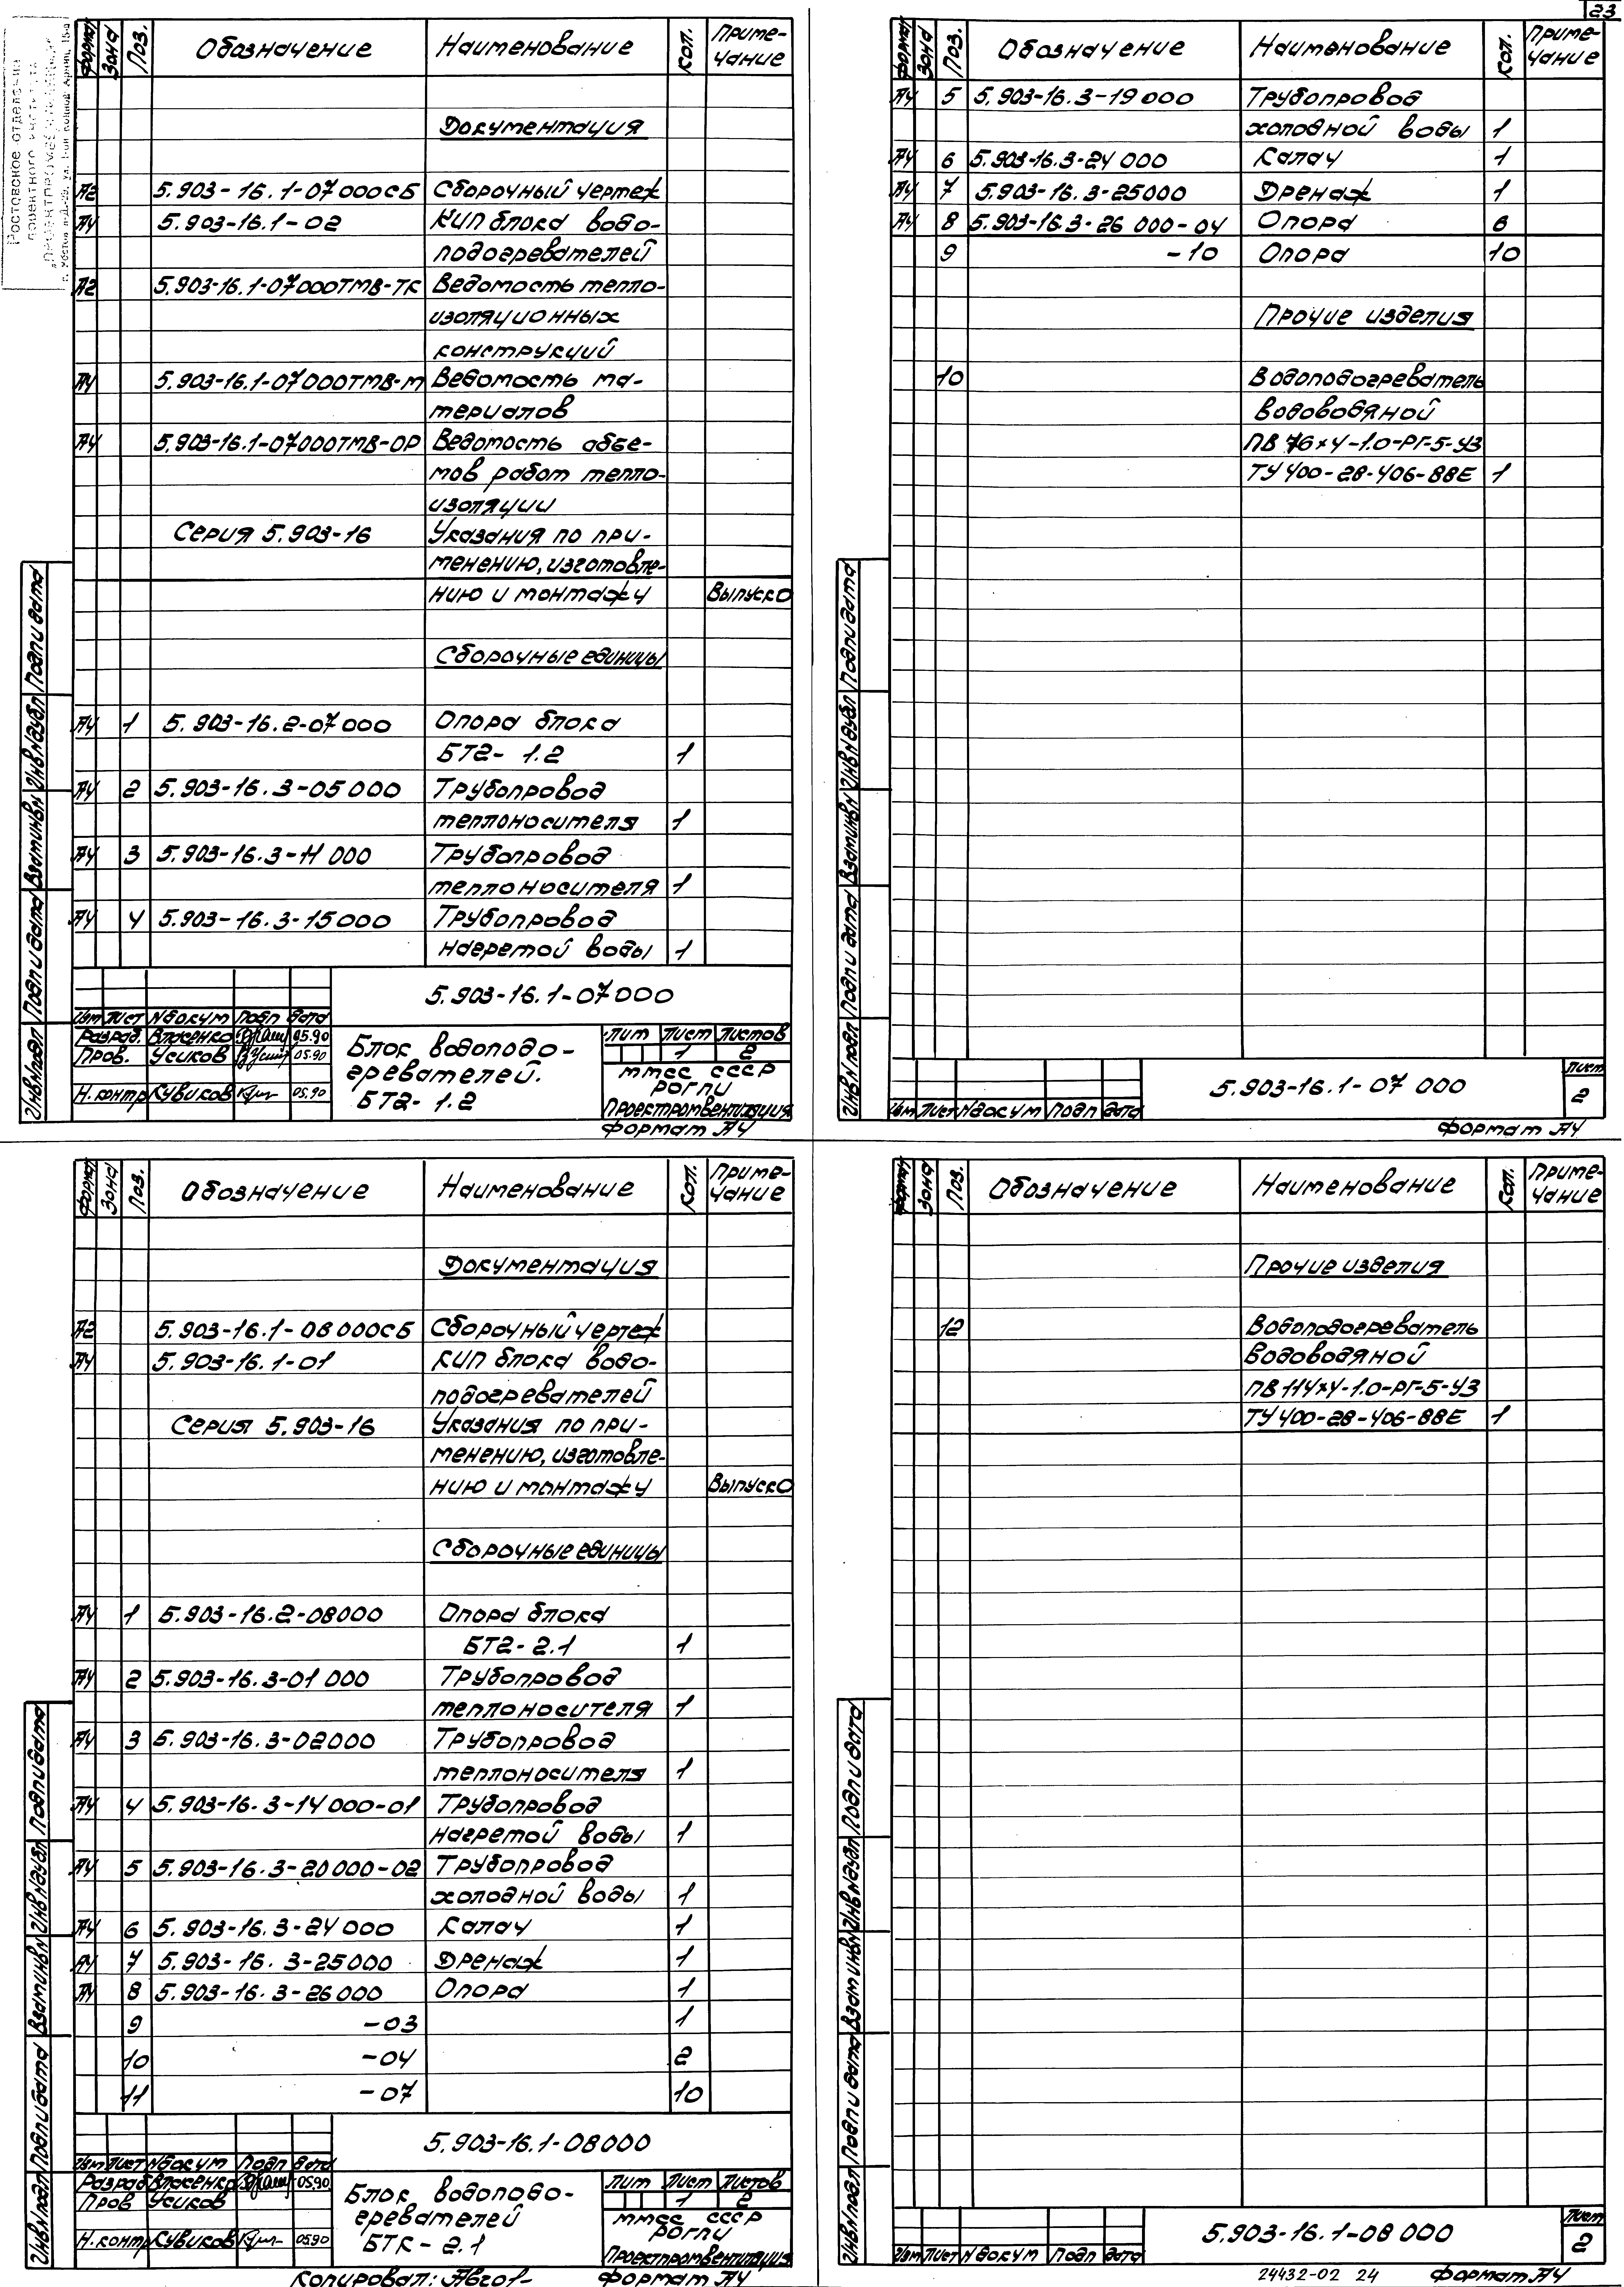 23
Формат Зона Поз. Обозначение Наименование Кол. Приме-
чание
Документация
А2 5.903-16.1-07000СБ Сборочный чертеж
А4 5.903-16.1-02 КИП блока водо-
подогревателей
А2 5.903-16.1-07000ТМВ-ТК Ведомость тепло-
изоляционных
конструкций
А4 5.903-16.1-07000ТМВ-М Ведомость ма-
териалов
А4 5.903-16.1-07000ТМВ-ОР Ведомость объе-
мов работ тепло-
изоляции
Серия 5.903-16 Указания по при-
менению, изготовле-
нию и монтажу Выпуск 0
Сборочные единицы
А4 1 5.903-16.2-07000 Опора блока
БТ2-1.2 1
А4 2 5.903-16.3-05000 Трубопровод
теплоносителя 1
А4 3 5.903-16.3-11 000 Трубопровод
теплоносителя 1
А4 4 5.903-16.3-15000 Трубопровод
нагретой воды 1
5.903-16.1-07000
Изм Лист N докум Подп Дата
Разраб. Власенко 05.90
Пров. Усиков 05.90
Н.контр Кувиков 05.90
Блок водоподо-
гревателей.
БТ2-1.2
Лит Лист Листов
1 2
ММСС СССР
РОГПИ
Проектпромвентиляция
Формат А4
Инв N подл Подп и дата Взам инв N Инв N дубл Подп и дата
Формат Зона Поз. Обозначение Наименование Кол. Приме-
чание
А4 5 5.903-16.3-19000 Трубопровод
холодной воды 1
А4 6 5.903-16.3-24 000 Калач 1
А4 7 5.903-16.3-25000 Дренаж 1
А4 8 5.903-16.3-26 000-04 Опора 6
9 -10 Опора 10
Прочие изделия
10 Водоподогреватель
водоводяной
ПВ 76х4-1.0-РГ-5-У3
ТУ 400-28-406-88Е 1
5.903-16.1-07 000
Изм Лист N докум Подп Дата
Лист
2
Формат А4
Инв N подл Подп и дата Взам инв N Инв N дубл Подп и дата
Формат Зона Поз. Обозначение Наименование Кол. Приме-
чание
Документация
А2 5.903-16.1-08000СБ Сборочный чертеж
А4 5.903-16.1-01 КИП блока водо-
подогревателей
Серия 5.903-16 Указания по при-
менению, изготовле-
нию и монтажу Выпуск 0
Сборочные единицы
А4 1 5.903-16.2-08000 Опора блока
БТ2-2.1 1
А4 2 5.903-16.3-01 000 Трубопровод
теплоносителя 1
А4 3 5.903-16.3-02000 Трубопровод
теплоносителя 1
А4 4 5.903-16.3-14000-01 Трубопровод
нагретой воды 1
А4 5 5.903-16.3-20000-02 Трубопровод
холодной воды 1
А4 6 5.903-16.3-24000 Калач 1
А4 7 5.903-16.3-25000 Дренаж 1
А4 8 5.903-16.3-26000 Опора 1
9 -03 1
10 -04 2
11 -07 10
5.903-16.1-08000
Изм Лист N докум Подп Дата
Разраб Власенко 05.90
Пров Усиков
Н.контр Кувиков 05.90
Блок водоподо-
гревателей
БТК-2.1
Лит Лист Листов
1 2
ММСС СССР
РОГПИ
Проектпромвентиляция
Копировал: Формат А4
Инв N подл Подп и дата Взам инв N Инв N дубл Подп и дата
Формат Зона Поз. Обозначение Наименование Кол. Приме-
чание
Прочие изделия
12 Водоподогреватель
водоводяной
ПВ 114х4-1.0-РГ-5-У3
ТУ 400-28-406-88Е 1
5.903-16.1-08 000
Изм Лист N докум Подп Дата
Лист
2
24432-02 24 Формат А4
Инв N подл Подп и дата Взам инв N Инв N дубл Подп и дата